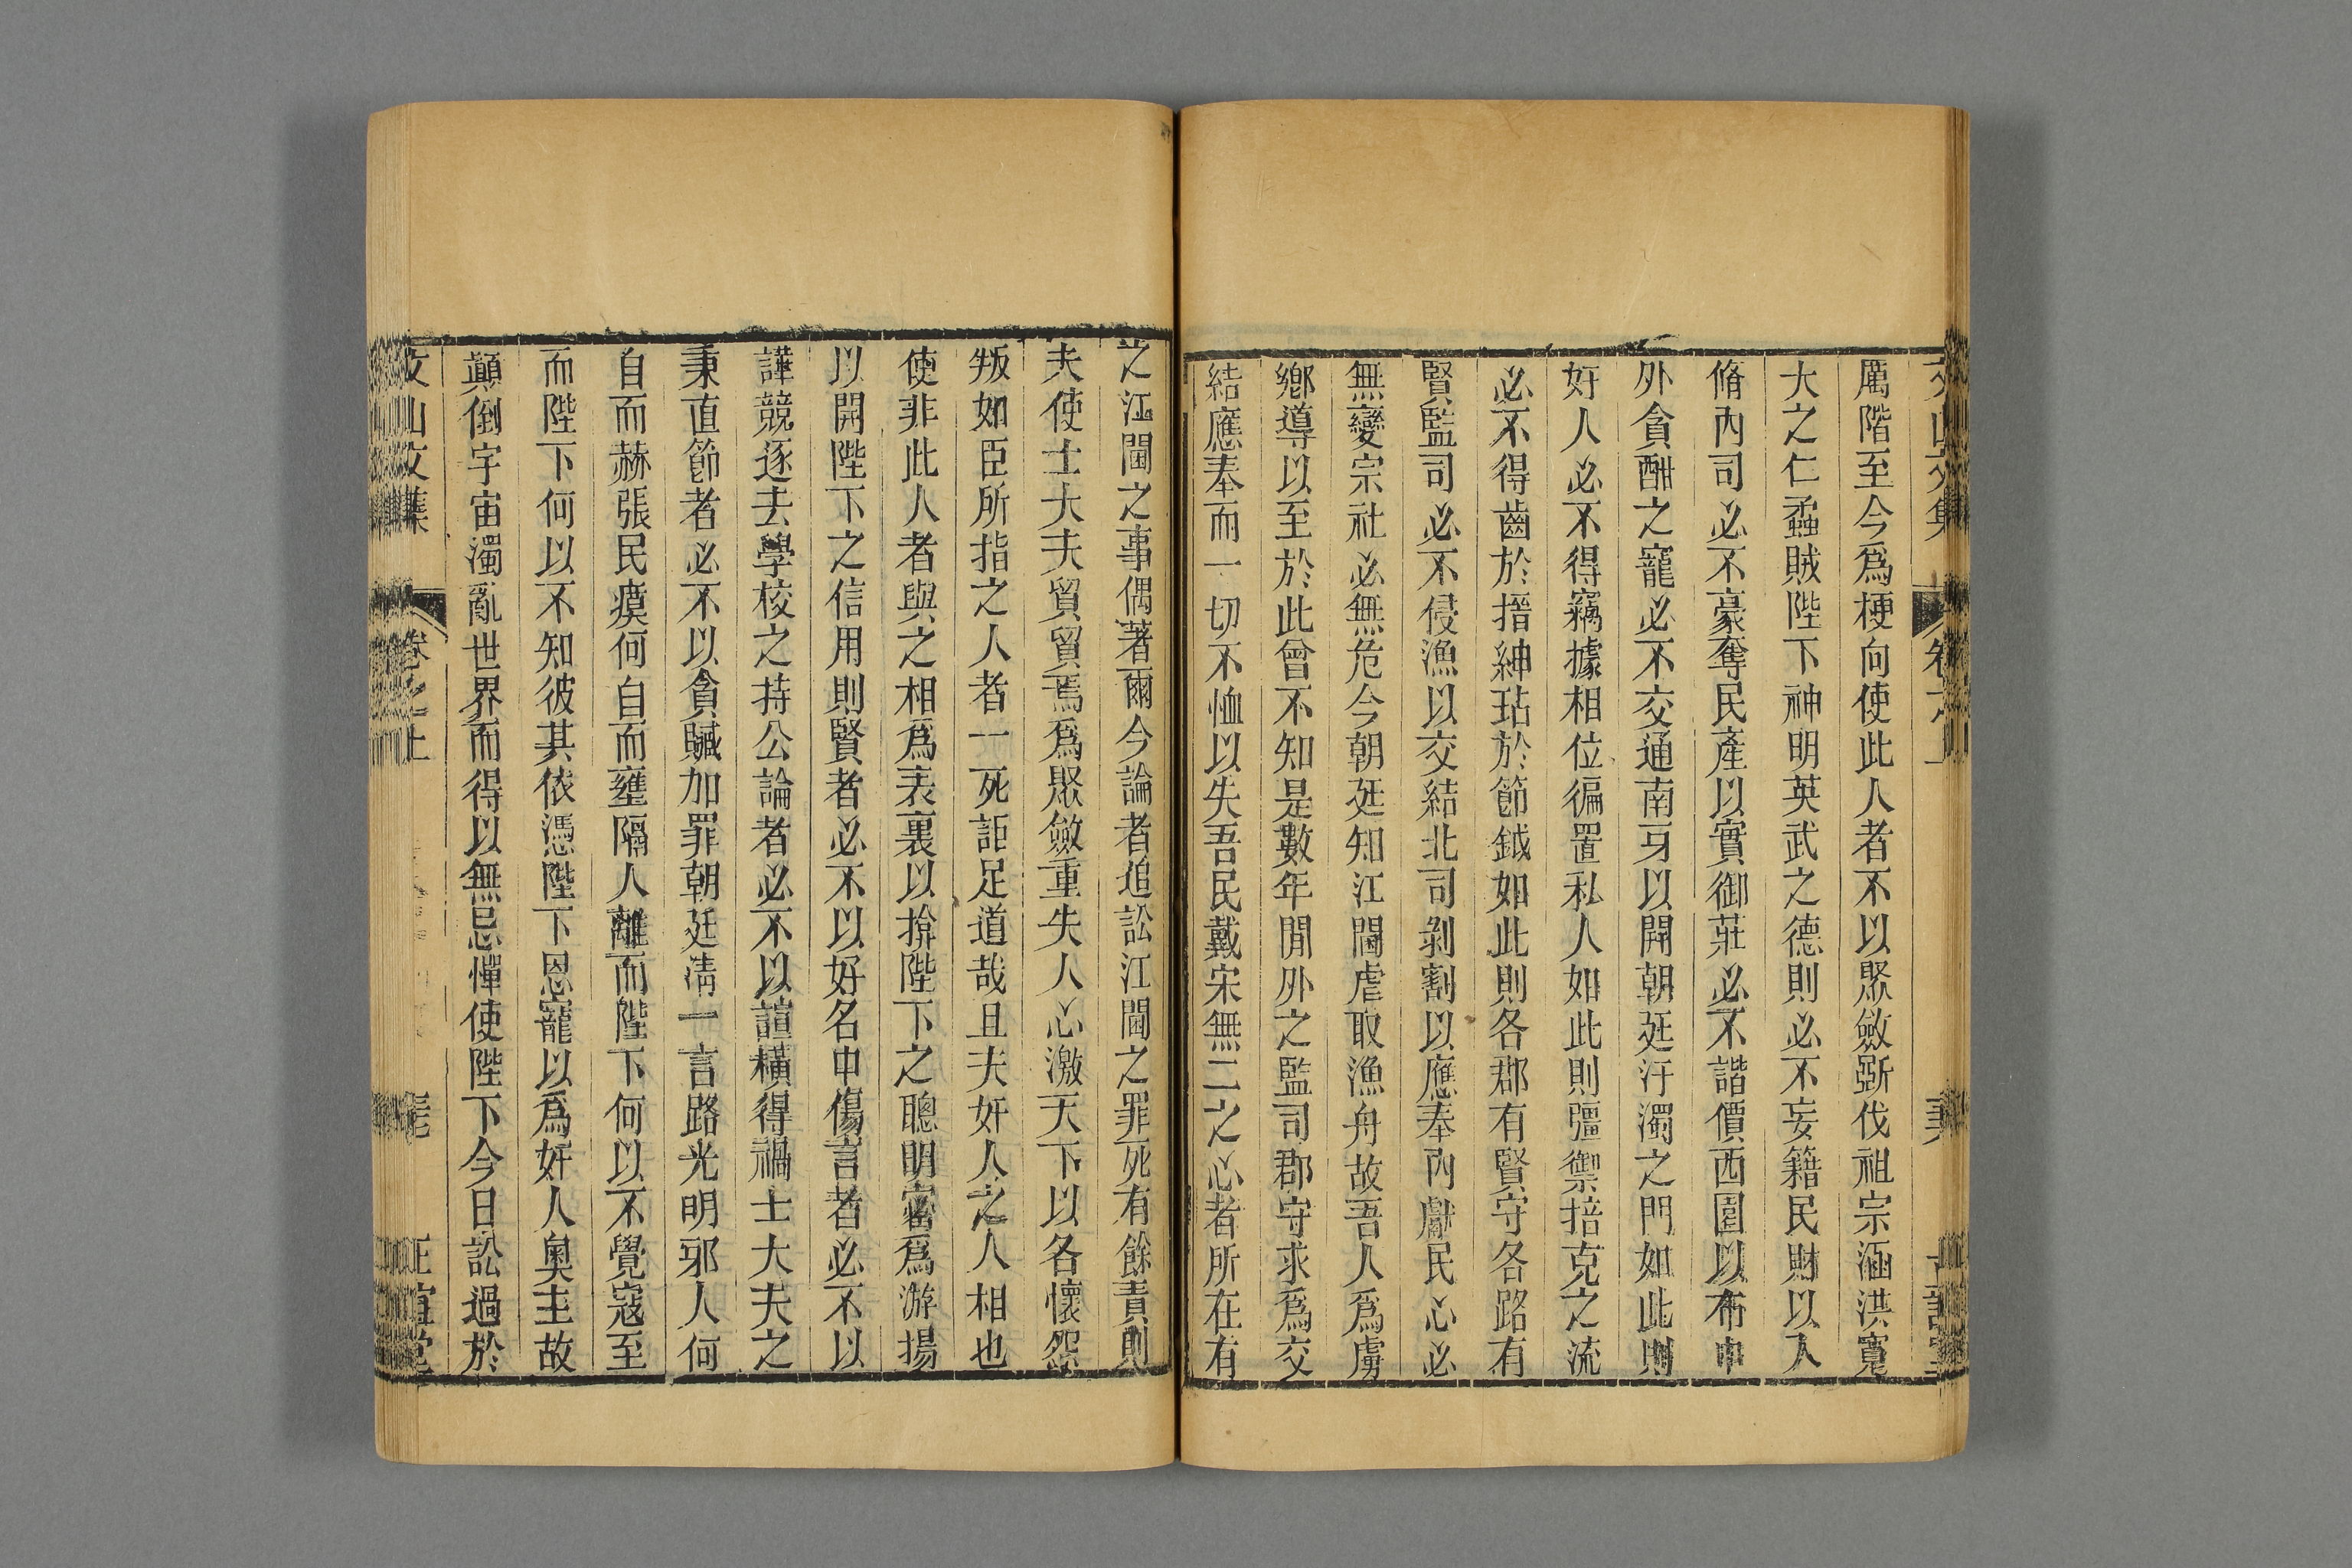 厲階至今爲梗向使此人者不以聚斂斲伐祖宗涵洪寬
大之仁蟊賊陛下神明英武之德則必不妄籍民財以入
脩內司必不豪奪民產以實御莊必不諧價西園以布中
外貪酣之寵必不交通南牙以開朝廷汙濁之門如此則
奸人必不得竊據相位徧置私人如此則彊禦掊克之流
必不得齒於搢紳玷於節鉞如此則各郡有賢守各路有
賢監司必不侵漁以交結北司剝割以應奉內獻民心必
無變宗社必無危今朝廷知江閫虐取漁舟故吾人爲虜
鄉導以至於此曾不知是數年閒外之監司郡守求爲交
結應奉而一切不恤以失吾民戴宋無二之心者所在有
之江閫之事偶著爾今論者追訟江閫之罪死有餘責則
夫使士大夫貿貿焉爲聚斂重失人心激天下以各懷怨
叛如臣所指之人者一死詎足道哉且夫奸人之人相也
使非此人者與之相爲表裏以揜陛下之聰明密爲游揚
以開陛下之信用則賢者必不以好名中傷言者必不以
譁競逐去學校之持公論者必不以諠橫得禍士大夫之
秉直節者必不以貪贓加罪朝廷清一言路光明邪人何
自而赫張民瘼何自而壅隔人離而陛下何以不覺寇至
而陛下何以不知彼其依憑陛下恩寵以爲奸人奧主故
顛倒宇宙濁亂世界而得以無忌憚使陛下今日訟過於
文山文集
卷之上
正誼堂